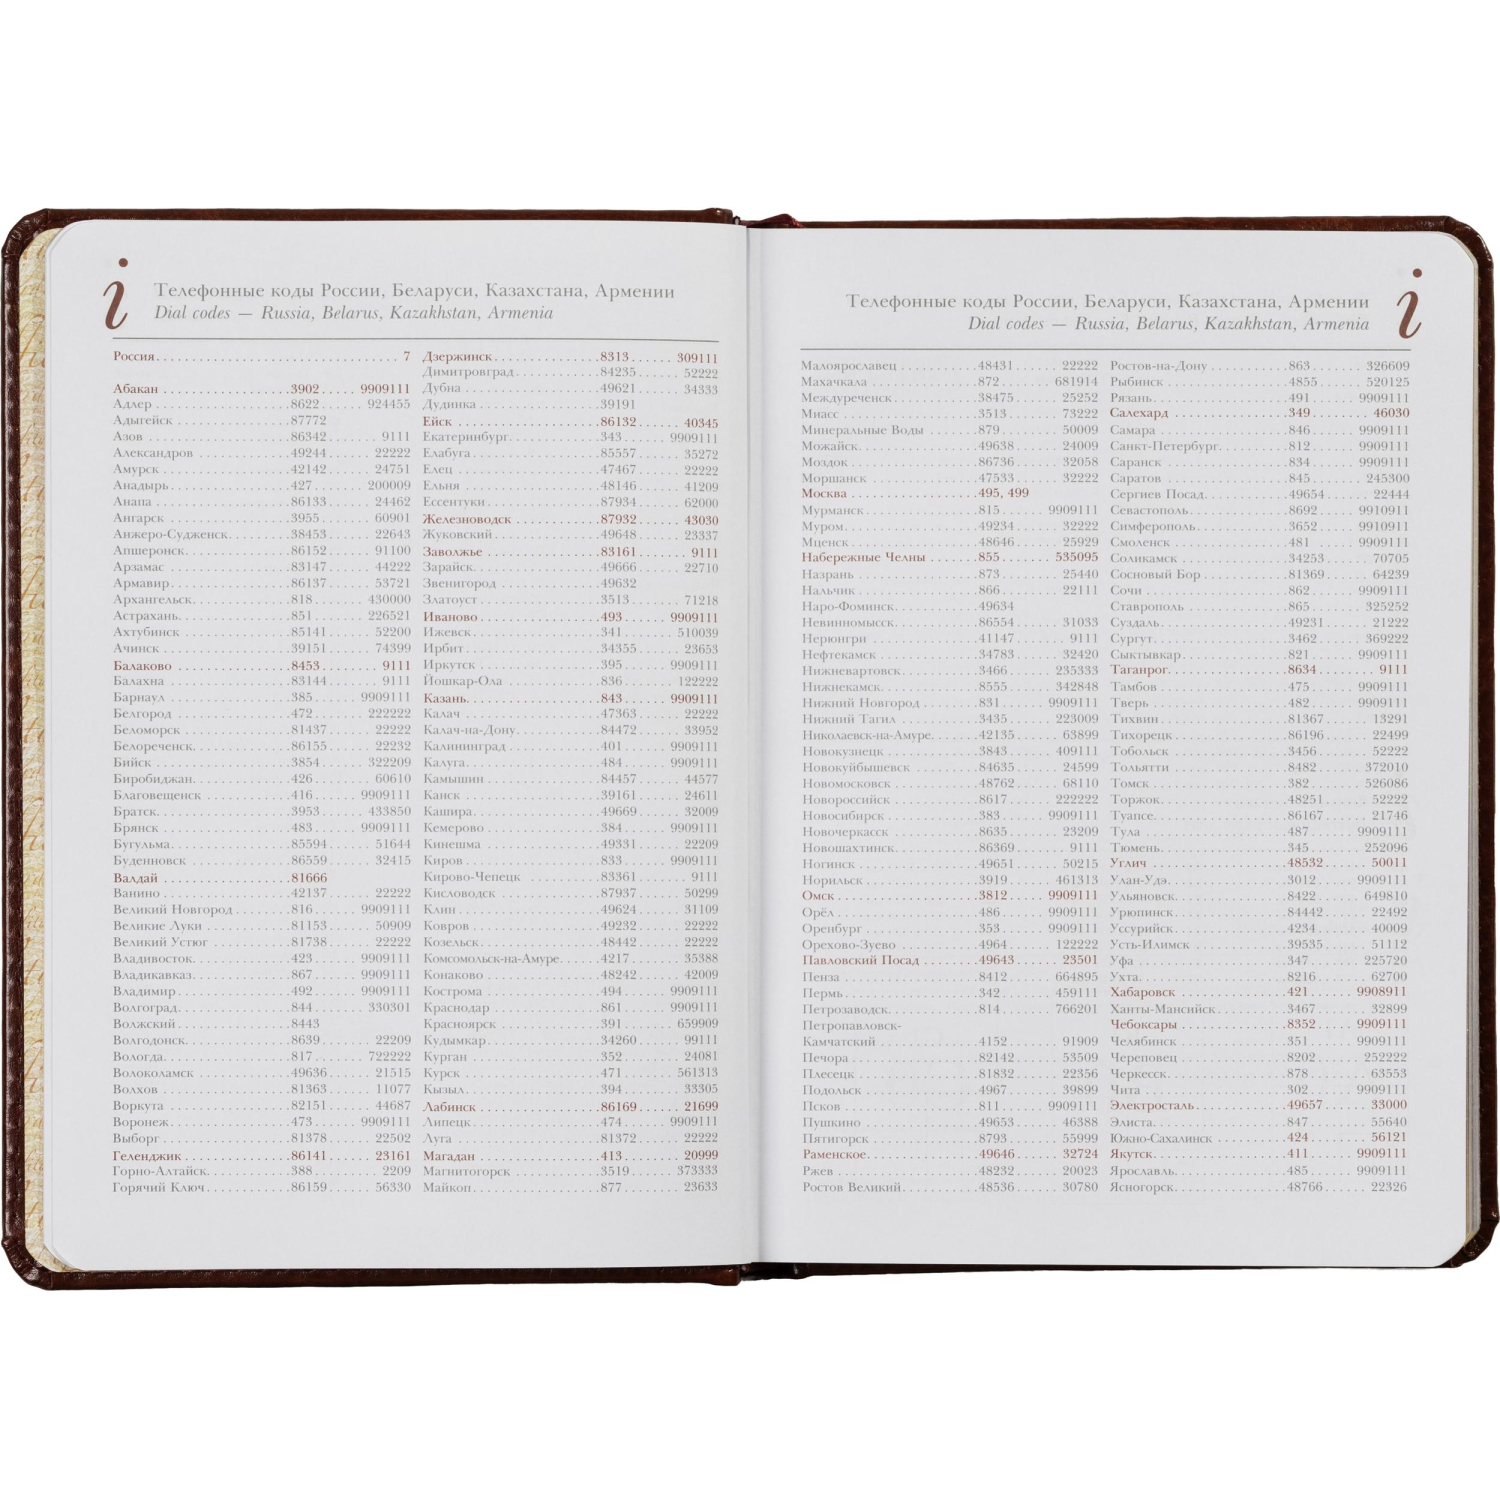 i
Телефонные коды России, Беларуси, Казахстана, Армении
Dial codes — Russia, Belarus, Kazakhstan, Armenia
Россия 7
Абакан 3902 9909111
Адлер 8622 924455
Адыгейск 87772
Азов 86342 9111
Александров 49244 22222
Амурск 42142 24751
Анадырь 427 200009
Анапа 86133 24462
Ангарск 3955 60901
Анжеро-Судженск 38453 22643
Апшеронск 86152 91100
Арзамас 83147 44222
Армавир 86137 53721
Архангельск 818 430000
Астрахань 851 226521
Ахтубинск 85141 52200
Ачинск 39151 74399
Балаково 8453 9111
Балахна 83144 9111
Барнаул 385 9909111
Белгород 472 222222
Беломорск 81437 22222
Белореченск 86155 22232
Бийск 3854 322209
Биробиджан 426 60610
Благовещенск 416 9909111
Братск 3953 433850
Брянск 483 9909111
Бугульма 85594 51644
Буденновск 86559 32415
Валдай 81666
Ванино 42137 22222
Великий Новгород 816 9909111
Великие Луки 81153 50909
Великий Устюг 81738 22222
Владивосток 423 9909111
Владикавказ 867 9909111
Владимир 492 9909111
Волгоград 844 330301
Волжский 8443
Волгодонск 8639 22209
Вологда 817 722222
Волоколамск 49636 21515
Волхов 81363 11077
Воркута 82151 44687
Воронеж 473 9909111
Выборг 81378 22502
Геленджик 86141 23161
Горно-Алтайск 388 2209
Горячий Ключ 86159 56330
Дзержинск 8313 309111
Димитровград 84235 52222
Дубна 49621 34333
Дудинка 39191
Ейск 86132 40345
Екатеринбург 343 9909111
Елабуга 85557 35272
Елец 47467 22222
Ельня 48146 41209
Ессентуки 87934 62000
Железноводск 87932 43030
Жуковский 49648 23337
Заволжье 83161 9111
Зарайск 49666 22710
Звенигород 49632
Златоуст 3513 71218
Иваново 493 9909111
Ижевск 341 510039
Ирбит 34355 23653
Иркутск 395 9909111
Йошкар-Ола 836 122222
Казань 843 9909111
Калач 47363 22222
Калач-на-Дону 84472 33952
Калининград 401 9909111
Калуга 484 9909111
Камышин 84457 44577
Канск 39161 24611
Кашира 49669 32009
Кемерово 384 9909111
Кинешма 49331 22209
Киров 833 9909111
Кирово-Чепецк 83361 9111
Кисловодск 87937 50299
Клин 49624 31109
Ковров 49232 22222
Козельск 48442 22222
Комсомольск-на-Амуре 4217 35388
Конаково 48242 42009
Кострома 494 9909111
Краснодар 861 9909111
Красноярск 391 659909
Кудымкар 34260 99111
Курган 352 24081
Курск 471 561313
Кызыл 394 33305
Лабинск 86169 21699
Липецк 474 9909111
Луга 81372 22222
Магадан 413 20999
Магнитогорск 3519 373333
Майкоп 877 23633
Телефонные коды России, Беларуси, Казахстана, Армении
Dial codes — Russia, Belarus, Kazakhstan, Armenia
i
Малоярославец 48431 22222
Махачкала 872 681914
Междуреченск 38475 25252
Миасс 3513 73222
Минеральные Воды 879 50009
Можайск 49638 24009
Моздок 86736 32058
Моршанск 47533 32222
Москва 495, 499
Мурманск 815 9909111
Муром 49234 32222
Мценск 48646 25929
Набережные Челны 855 535095
Назрань 873 25440
Нальчик 866 22111
Наро-Фоминск 49634
Невинномысск 86554 31033
Нерюнгри 41147 9111
Нефтекамск 34783 32420
Нижневартовск 3466 235333
Нижнекамск 8555 342848
Нижний Новгород 831 9909111
Нижний Тагил 3435 223009
Николаевск-на-Амуре 42135 63899
Новокузнецк 3843 409111
Новокуйбышевск 84635 24599
Новомосковск 48762 68110
Новороссийск 8617 222222
Новосибирск 383 9909111
Новочеркасск 8635 23209
Новошахтинск 86369 9111
Ногинск 49651 50215
Норильск 3919 461313
Омск 3812 9909111
Орёл 486 9909111
Оренбург 353 9909111
Орехово-Зуево 4964 122222
Павловский Посад 49643 23501
Пенза 8412 664895
Пермь 342 459111
Петрозаводск 814 766201
Петропавловск-
Камчатский 4152 91909
Печора 82142 53509
Плесецк 81832 22356
Подольск 4967 39899
Псков 811 9909111
Пушкино 49653 46388
Пятигорск 8793 55999
Раменское 49646 32724
Ржев 48232 20023
Ростов Великий 48536 30780
Ростов-на-Дону 863 326609
Рыбинск 4855 520125
Рязань 491 9909111
Салехард 349 46030
Самара 846 9909111
Санкт-Петербург 812 9909111
Саранск 834 9909111
Саратов 845 245300
Сергиев Посад 49654 22444
Севастополь 8692 9910911
Симферополь 3652 9910911
Смоленск 481 9909111
Соликамск 34253 70705
Сосновый Бор 81369 64239
Сочи 862 9909111
Ставрополь 865 325252
Суздаль 49231 21222
Сургут 3462 369222
Сыктывкар 821 9909111
Таганрог 8634 9111
Тамбов 475 9909111
Тверь 482 9909111
Тихвин 81367 13291
Тихорецк 86196 22499
Тобольск 3456 52222
Тольятти 8482 372010
Томск 382 526086
Торжок 48251 52222
Туапсе 86167 21746
Тула 487 9909111
Тюмень 345 252096
Углич 48532 50011
Улан-Удэ 3012 9909111
Ульяновск 8422 649810
Урюпинск 84442 22492
Уссурийск 4234 40009
Усть-Илимск 39535 51112
Уфа 347 225720
Ухта 8216 62700
Хабаровск 421 9908911
Ханты-Мансийск 3467 32899
Чебоксары 8352 9909111
Челябинск 351 9909111
Череповец 8202 252222
Черкесск 878 63553
Чита 302 9909111
Электросталь 49657 33000
Элиста 847 55640
Южно-Сахалинск 424 56121
Якутск 411 9909111
Ярославль 485 9909111
Ясногорск 48766 22326